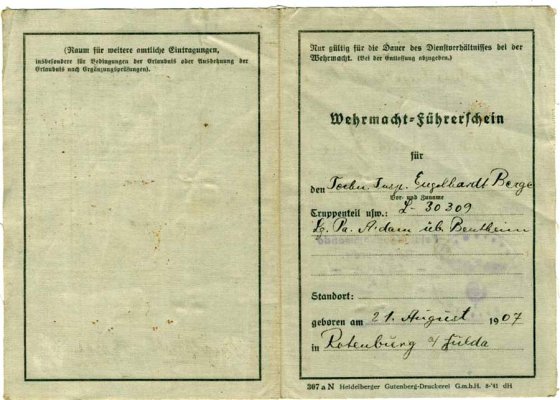 (Raum für weitere amtliche Eintragungen,
insbesondere für Bedingungen der Erlaubnis oder Ausdehnung der
Erlaubnis nach Ergänzungsprüfungen).
Nur gültig für die Dauer des Dienstverhältnisses bei der
Wehrmacht. (Bei der Entlassung abzugeben.)
Wehrmacht-Führerschein
für
den Techn. Insp. Engelhardt Berge
Vor- und Zuname
Truppenteil usw.: L-30309
Lg. Pa. A'dam üb. Bentheim
Standort:
geboren am 21. August 1907
in Rotenburg a/Fulda
307 a N Heidelberger Gutenberg-Druckerei G.m.b.H. 8-'41 dH